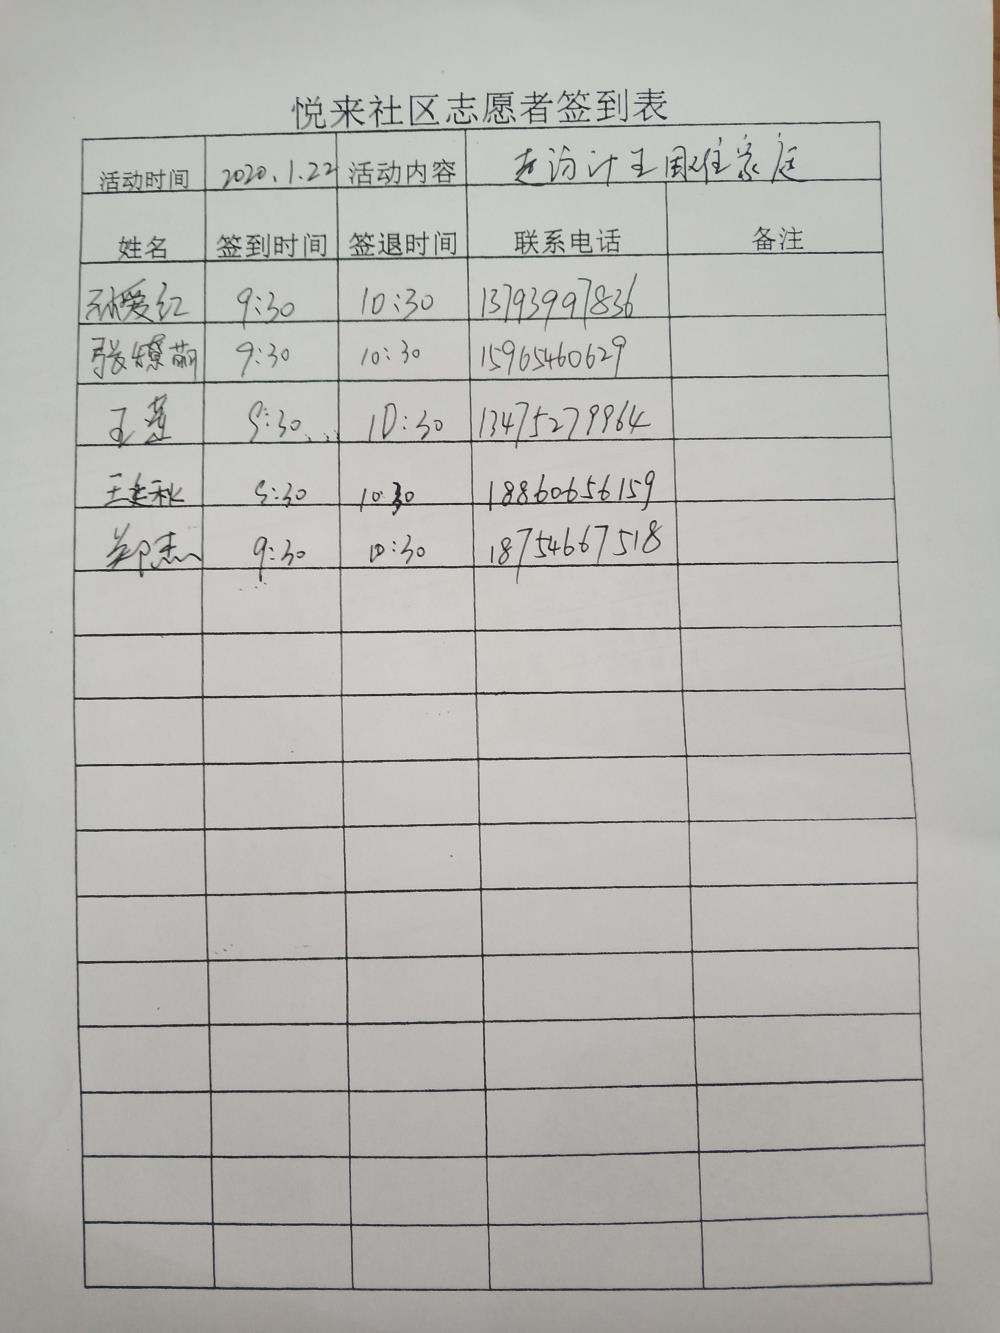 悦来社区志愿者签到表
活动时间 2020.1.22 活动内容 走访计王困难家庭
姓名 签到时间 签退时间 联系电话 备注
孙爱红 9:30 10:30 13793997836
张燎萌 9:30 10:30 15965460629
王莲 9:30 10:30 13475279964
王秋 9:30 10:30 18860656159
郑杰 9:30 10:30 18754667518